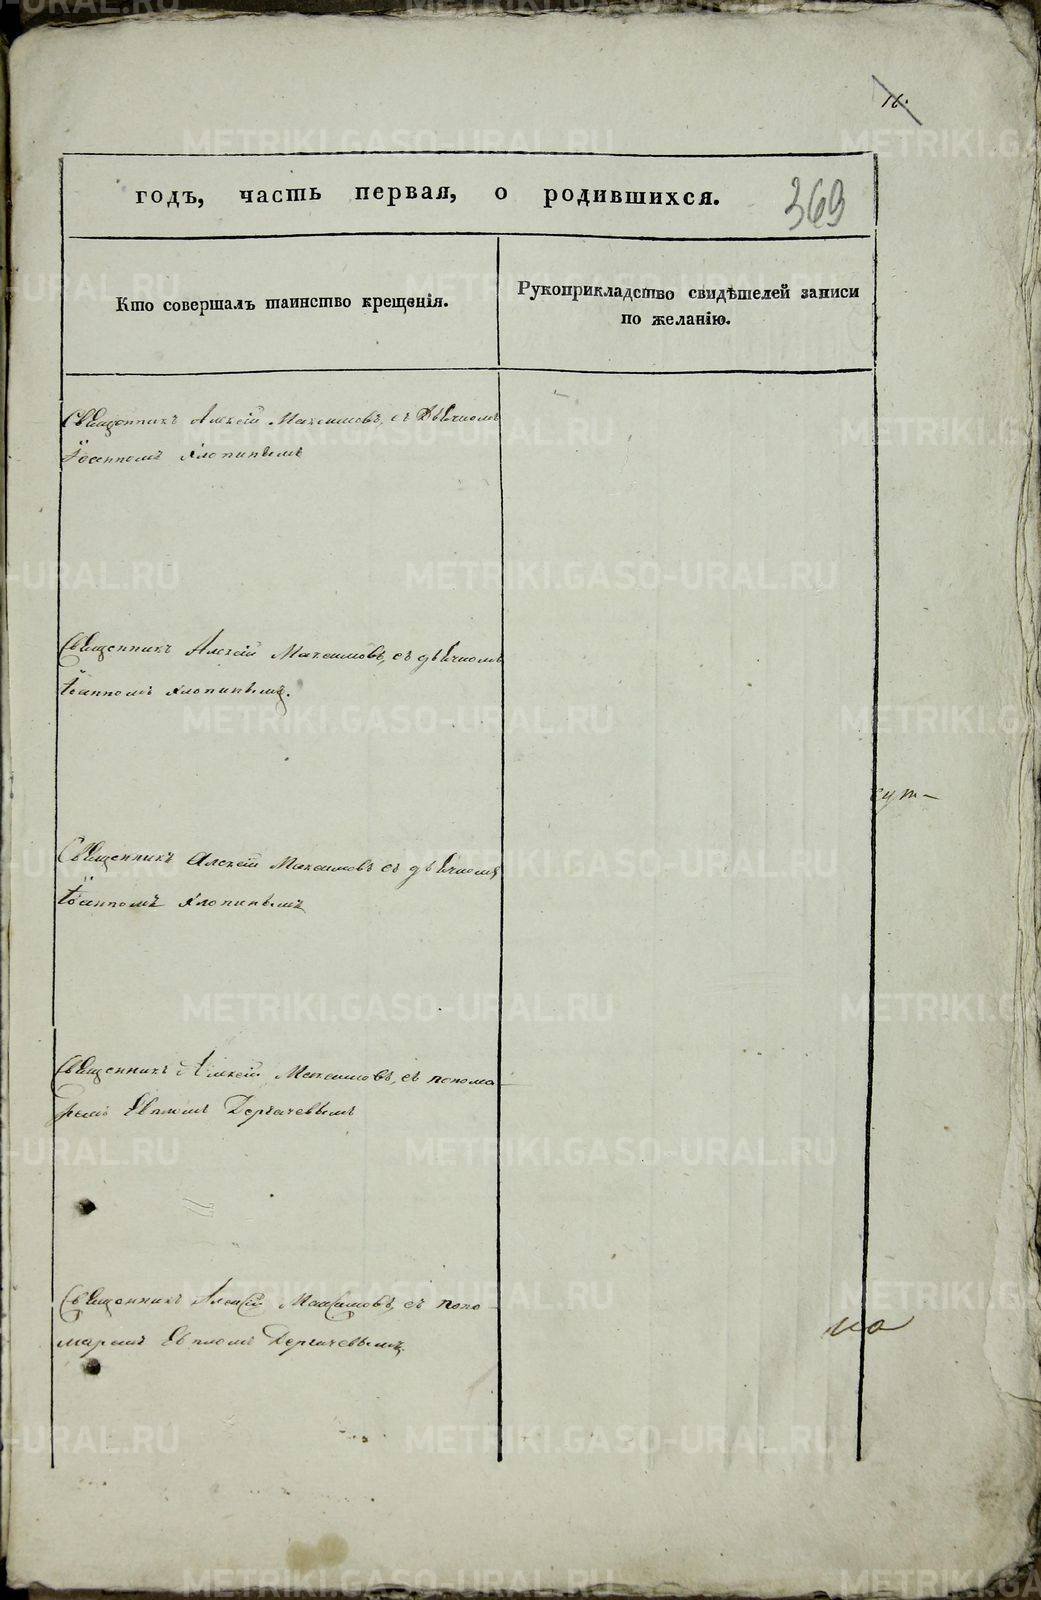 16.
годъ, часть первая, о родившихся.
369
Кто совершалъ таинство крещенія.
Рукоприкладство свидѣтелей записи
по желанію.
Священникъ Алексій Максимовъ, съ Дьячкомъ
Іоанномъ Хлопинымъ
Священникъ Алексій Максимовъ, съ дьячкомъ
Іоанномъ Хлопинымъ.
Священникъ Алексій Максимовъ съ дьячкомъ
Іоанномъ Хлопинымъ
Священникъ Алексій Максимовъ, съ понома-
ремъ Евпломъ Дергачевымъ
Священникъ Алексій Максимовъ, съ поно-
маремъ Евпломъ Дергачевымъ
METRIKI.GASO-URAL.RU